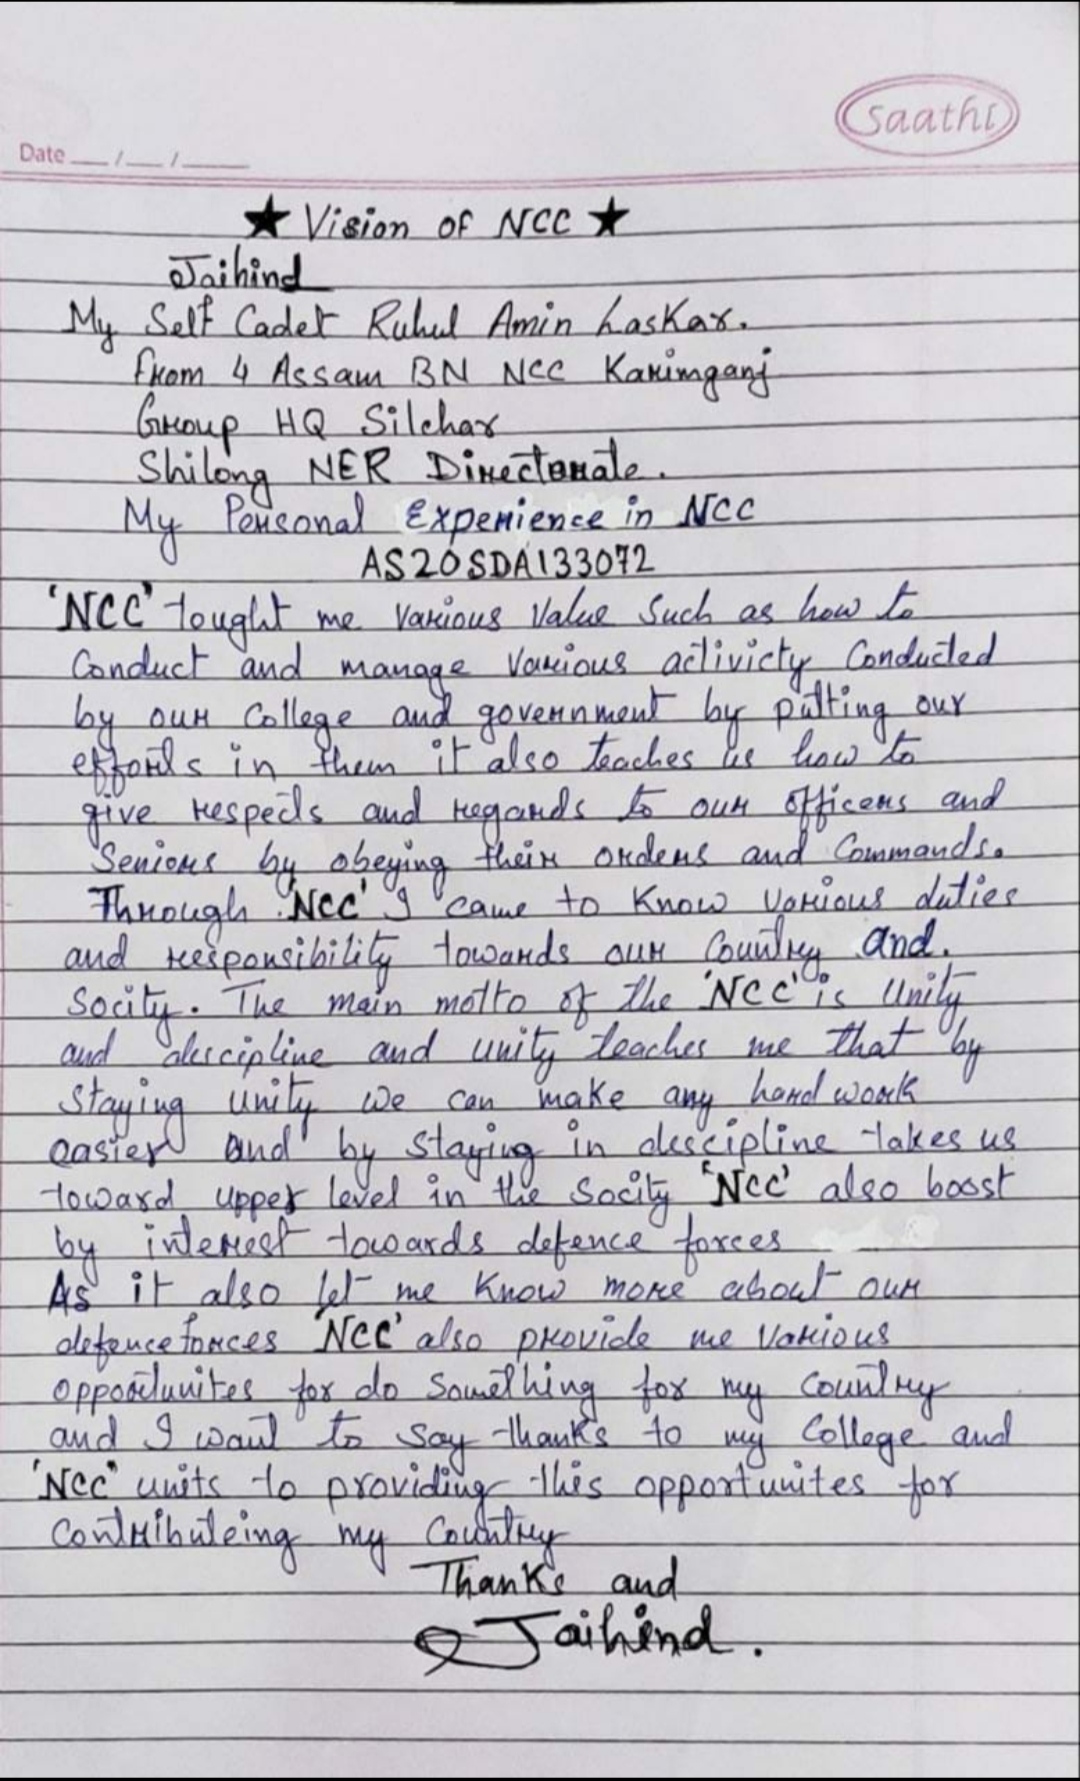 saathi
Date __/__/____
★ Vision of NCC ★
Jaihind
My Self Cadet Ruhul Amin Laskar.
From 4 Assam BN NCC Karimganj
Group HQ Silchar
Shilong NER Directorate.
My Personal Experience in NCC
AS20SDA133072
'NCC' tought me various value Such as how to
Conduct and manage various activicty Conducted
by our College and government by putting our
efforts in them it also teaches us how to
give respects and regards to our officers and
Seniors by obeying their orders and Commands.
Through 'NCC' I came to Know various duties
and responsibility towards our Country and.
Socity. The main motto of the 'NCC' is Unity
and descipline and unity teaches me that by
Staying unity we can make any hard work
easier and by Staying in descipline takes us
toward upper level in the Socity 'NCC' also boost
by interest towards defence forces
As it also let me Know more about our
defence forces 'NCC' also provide me various
opportunites for do Something for my Country
and I want to Say thanks to my College and
'NCC' units to providing this opportunites for
Contributeing my Country
Thanks and
Jaihind.